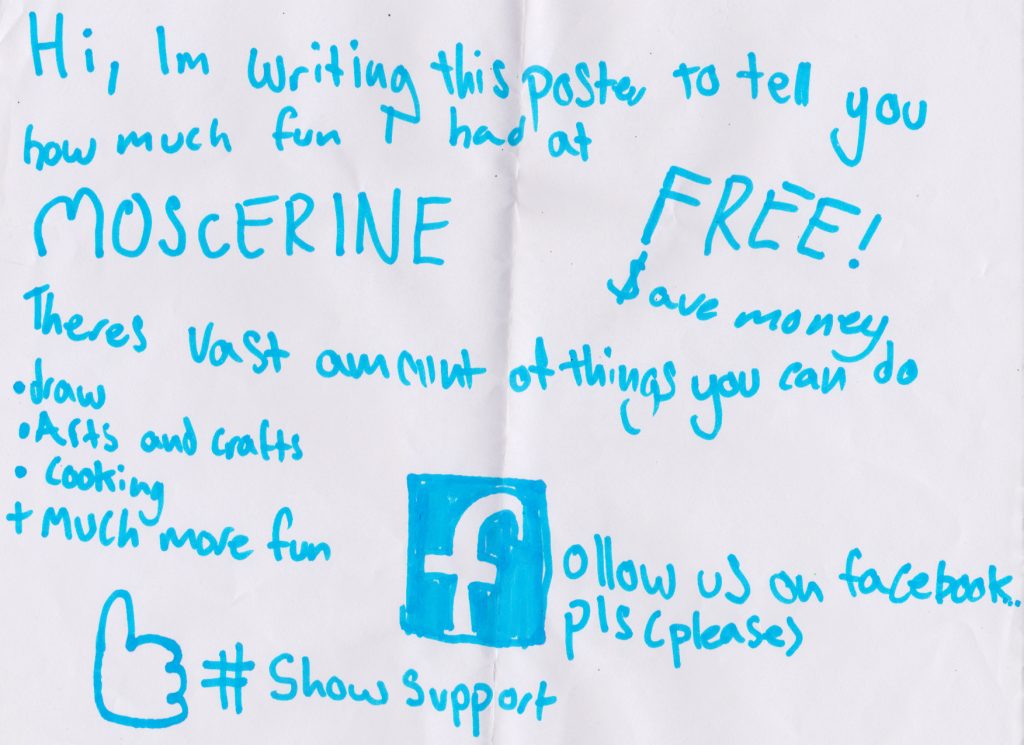 Hi, Im writing this poster to tell you
how much fun I had at
MOSCERINE
FREE!
$ave money
Theres vast amount of things you can do
•draw
•Arts and crafts
• cooking
+ Much more fun
follow us on facebook..
pls (please)
# Show support